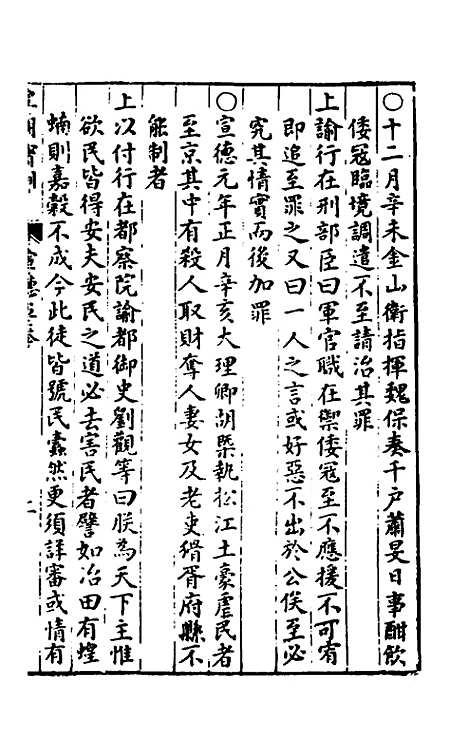 ○十二月辛未金山衛指揮魏保奏千戶蕭旻日事酣飲
倭寇臨境調遣不至請治其罪
上諭行在刑部臣曰軍官職在禦倭寇至不應援不可宥
即追至罪之又曰一人之言或好惡不出於公俟至必
究其情實而後加罪
○宣德元年正月辛亥大理卿胡槩執松江土豪虐民者
至京其中有殺人取財奪人妻女及老吏猾胥府縣不
能制者
上以付行在都察院諭都御史劉觀等曰朕為天下主惟
欲民皆得安夫安民之道必去害民者譬如治田有蝗
蝻則嘉穀不成今此徒皆號民蠹然更須詳審或情有
宣德
二